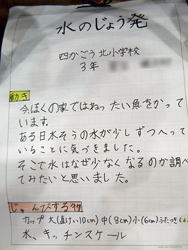 水のじょう発
四かごう北小学校
3年
動き
今ぼくの家ではねったい魚をかって
います。
ある日水そうの水が少しずつへって
いることに気づきました。
そこで水はなぜ少なくなるのか調べ
てみたいと思いました。
じゅんびする物
カップ大(直けい10cm)中(8cm)小(6cm)ふたつき
水、キッチンスケール